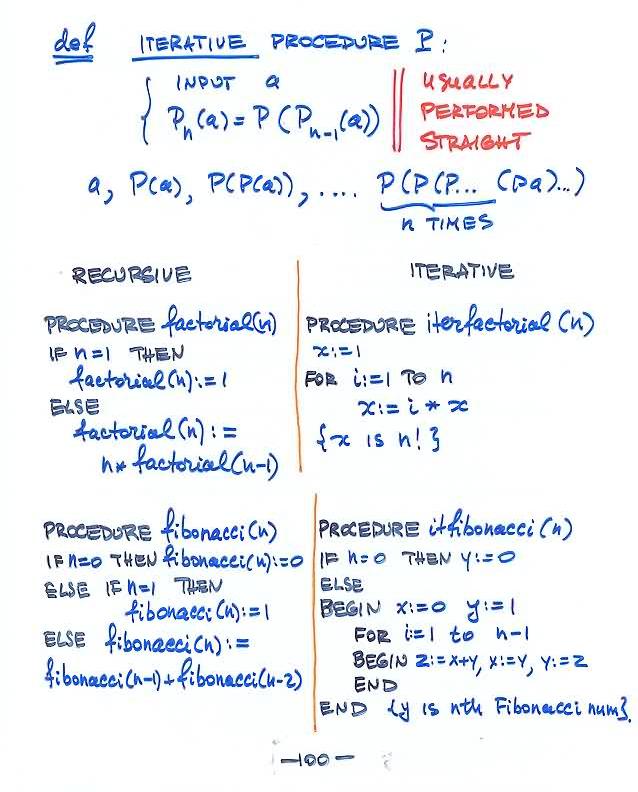 def ITERATIVE PROCEDURE P:
INPUT a
Pn(a) = P(Pn-1(a))
USUALLY
PERFORMED
STRAIGHT
a, P(a), P(P(a)), .... P(P(P... (Pa)...)
n TIMES
RECURSIVE
PROCEDURE factorial(n)
IF n=1 THEN
factorial(n):=1
ELSE
factorial(n):=
n* factorial(n-1)
ITERATIVE
PROCEDURE iterfactorial (n)
x:=1
FOR i:=1 TO n
x:= i * x
{x is n!}
PROCEDURE fibonacci(n)
IF n=0 THEN fibonacci(n):=0
ELSE IF n=1 THEN
fibonacci(n):=1
ELSE fibonacci(n):=
fibonacci(n-1)+fibonacci(n-2)
PROCEDURE itfibonacci(n)
IF n=0 THEN y:=0
ELSE
BEGIN x:=0 y:=1
FOR i:=1 to n-1
BEGIN z:=x+y, x:=y, y:=z
END
END {y is nth Fibonacci num}.
-100-